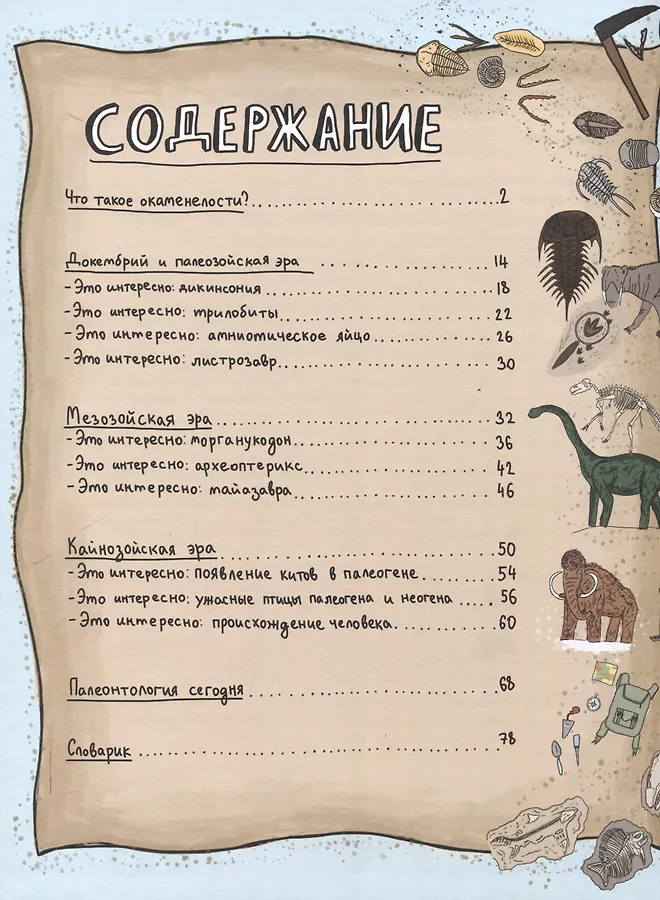 СОДЕРЖАНИЕ
Что такое окаменелости?..................2
Докембрий и палеозойская эра ................. 14
- Это интересно: дикинсония ................. 18
- Это интересно: трилобиты................. 22
- Это интересно: амниотическое яйцо............ 26
- Это интересно: листрозавр................. 30
Мезозойская эра ....................... 32
- Это интересно: морганукодон................. 36
- Это интересно: археоптерикс................. 42
- Это интересно: майазавра................. 46
Кайнозойская эра ....................... 50
- Это интересно: появление китов в палеогене........ 54
- Это интересно: ужасные птицы палеогена и неогена ..... 56
- Это интересно: происхождение человека.......... 60
Палеонтология сегодня ..................... 68
Словарик ............................ 78